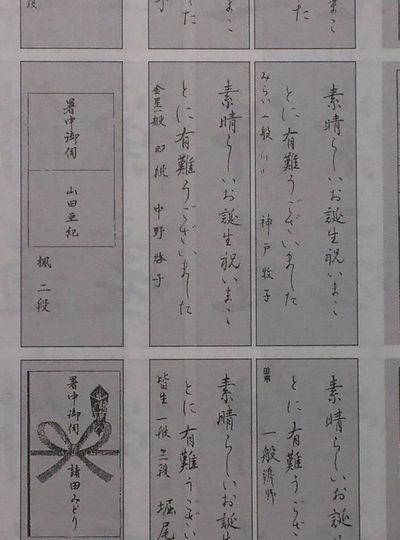 まこ
た
素晴らしいお誕生祝いまこ
とに有難うございました
みらい 一般
神戸牧子
素晴らしいお誕生祝いまこ
とに有難うございました
四級 中野啓子
暑中御伺
山田亜紀
楓 二段
素晴らしいお誕
とに有難うござ
一般
素晴らしいお誕生
とに有難うござい
皆生 一般 三段 堀尾
暑中御伺
諸田みどり